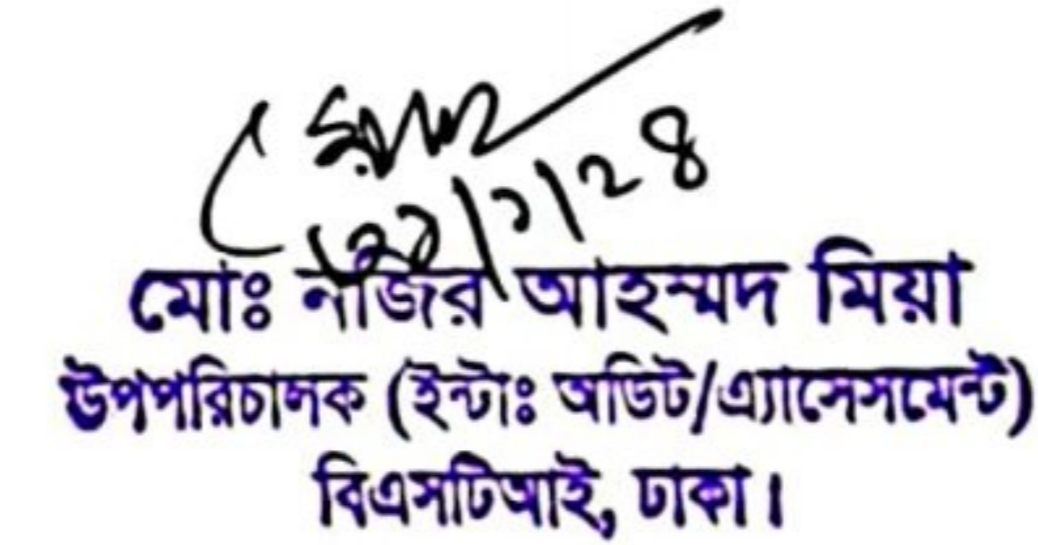 মোঃ নজির আহম্মদ মিয়া
উপপরিচালক (ইন্টাঃ অডিট/এ্যাসেসমেন্ট)
বিএসটিআই, ঢাকা।